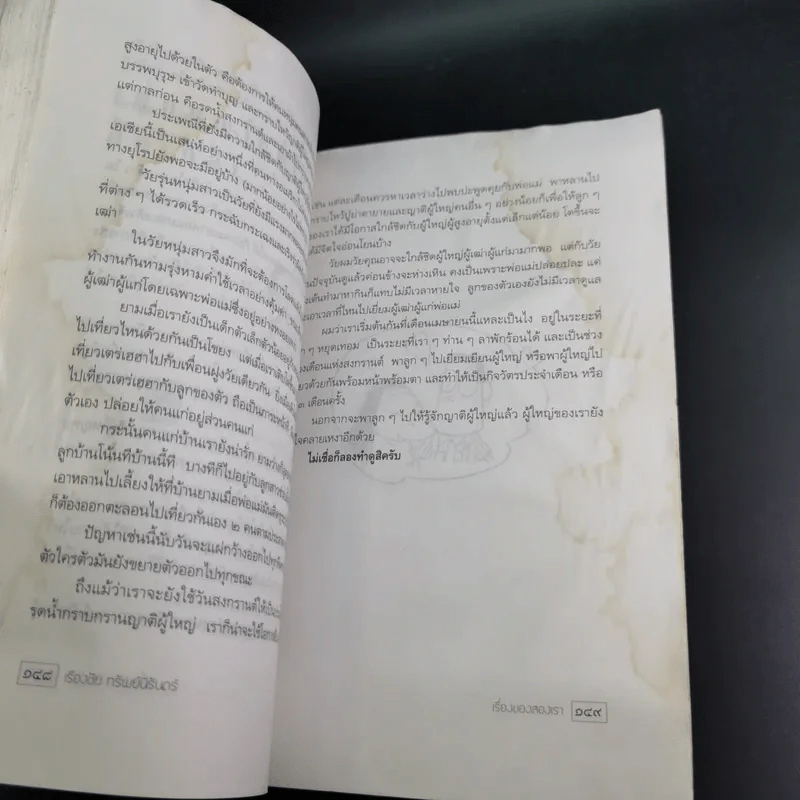 สูงอายุไปด้วยในตัว คือต้องการให้
บรรพบุรุษ เข้าวัดทำบุญ และกราบไหว้ญาติ
แต่กาลก่อน คือรดน้ำสงกรานต์และเอา
ประเพณีที่ยังมีความใกล้ชิดกับญาติผู้
เอเชียนี้เป็นเสน่ห์อย่างหนึ่งที่คนทาง
ทางยุโรปยังพอจะมีอยู่บ้าง (มากน้อยอย่างไร
วัยรุ่นหนุ่มสาวเป็นวัยที่ยังมีแรง
ที่ต่าง ๆ ได้รวดเร็ว กระฉับกระเฉงและ
เฒ่า
ในวัยหนุ่มสาวจึงมักที่จะต้องการ
ทำงานกันหามรุ่งหามค่ำใช้เวลาอย่างคุ้มค่า
ผู้เฒ่าผู้แก่โดยเฉพาะพ่อแม่ซึ่งอยู่อย่าง
ยามเมื่อเรายังเป็นเด็กตัวเล็กตัวน้อยอยู่
ไปเที่ยวไหนด้วยกันเป็นโขยง แต่เมื่อเรา
เที่ยวเตร่เฮฮาไปกับเพื่อนฝูงวัยเดียวกัน
ไปเที่ยวเตร่เฮฮากับลูกของตัว ถือเป็นภาระหนัก
ตัวเอง ปล่อยให้คนแก่อยู่ส่วนคนแก่
กระนั้นคนแก่บ้านเรายังน่ารัก ยามว่าง
ลูกบ้านโน้นทีบ้านนี้ที บางทีก็ไปอยู่กับลูกสาว
เอาหลานไปเลี้ยงให้ที่บ้านยามเมื่อพ่อแม่
ก็ต้องออกตะลอนไปเที่ยวกันเอง ๒ คนตาม
ปัญหาเช่นนี้นับวันจะแผ่กว้างออกไปทุก
ตัวใครตัวมันยังขยายตัวออกไปทุกขณะ
ถึงแม้ว่าเราจะยังใช้วันสงกรานต์ให้เป็น
รดน้ำกราบกรานญาติผู้ใหญ่ เราก็น่าจะใช้โอกาส
๑๔๘ เรืองชัย ทรัพย์นิรันดร์
เช่น แต่ละเดือนควรหาเวลาว่างไปพบปะพูดคุยกับพ่อแม่ พาหลานไป
กราบไหว้ปู่ย่าตายายและญาติผู้ใหญ่คนอื่น ๆ อย่างน้อยก็เพื่อให้ลูก ๆ
ของเราได้มีโอกาสใกล้ชิดกับผู้ใหญ่ผู้สูงอายุตั้งแต่เล็กแต่น้อย โตขึ้นจะ
ได้มีจิตใจอ่อนโยนบ้าง
วัยผมวัยคุณอาจจะใกล้ชิดผู้ใหญ่ผู้เฒ่าผู้แก่มามากพอ แต่กับวัย
ปัจจุบันดูแล้วค่อนข้างจะห่างเหิน คงเป็นเพราะพ่อแม่ปล่อยปละ แค่
เต้นทำมาหากินก็แทบไม่มีเวลาหายใจ ลูกของตัวเองยังไม่มีเวลาดูแล
เอาเวลาที่ไหนไปเยี่ยมผู้เฒ่าผู้แก่พ่อแม่
ผมว่าเราเริ่มต้นกันที่เดือนเมษายนนี้แหละเป็นไง อยู่ในระยะที่
ๆ หยุดเทอม เป็นระยะที่เรา ๆ ท่าน ๆ ลาพักร้อนได้ และเป็นช่วง
เดือนแห่งสงกรานต์ พาลูก ๆ ไปเยี่ยมเยียนผู้ใหญ่ หรือพาผู้ใหญ่ไป
ยวด้วยกันพร้อมหน้าพร้อมตา และทำให้เป็นกิจวัตรประจำเดือน หรือ
๓ เดือนครั้ง
นอกจากจะพาลูก ๆ ไปให้รู้จักญาติผู้ใหญ่แล้ว ผู้ใหญ่ของเรายัง
ใจคลายเหงาอีกด้วย
ไม่เชื่อก็ลองทำดูสิครับ
เรื่องของสองเรา ๑๔๙